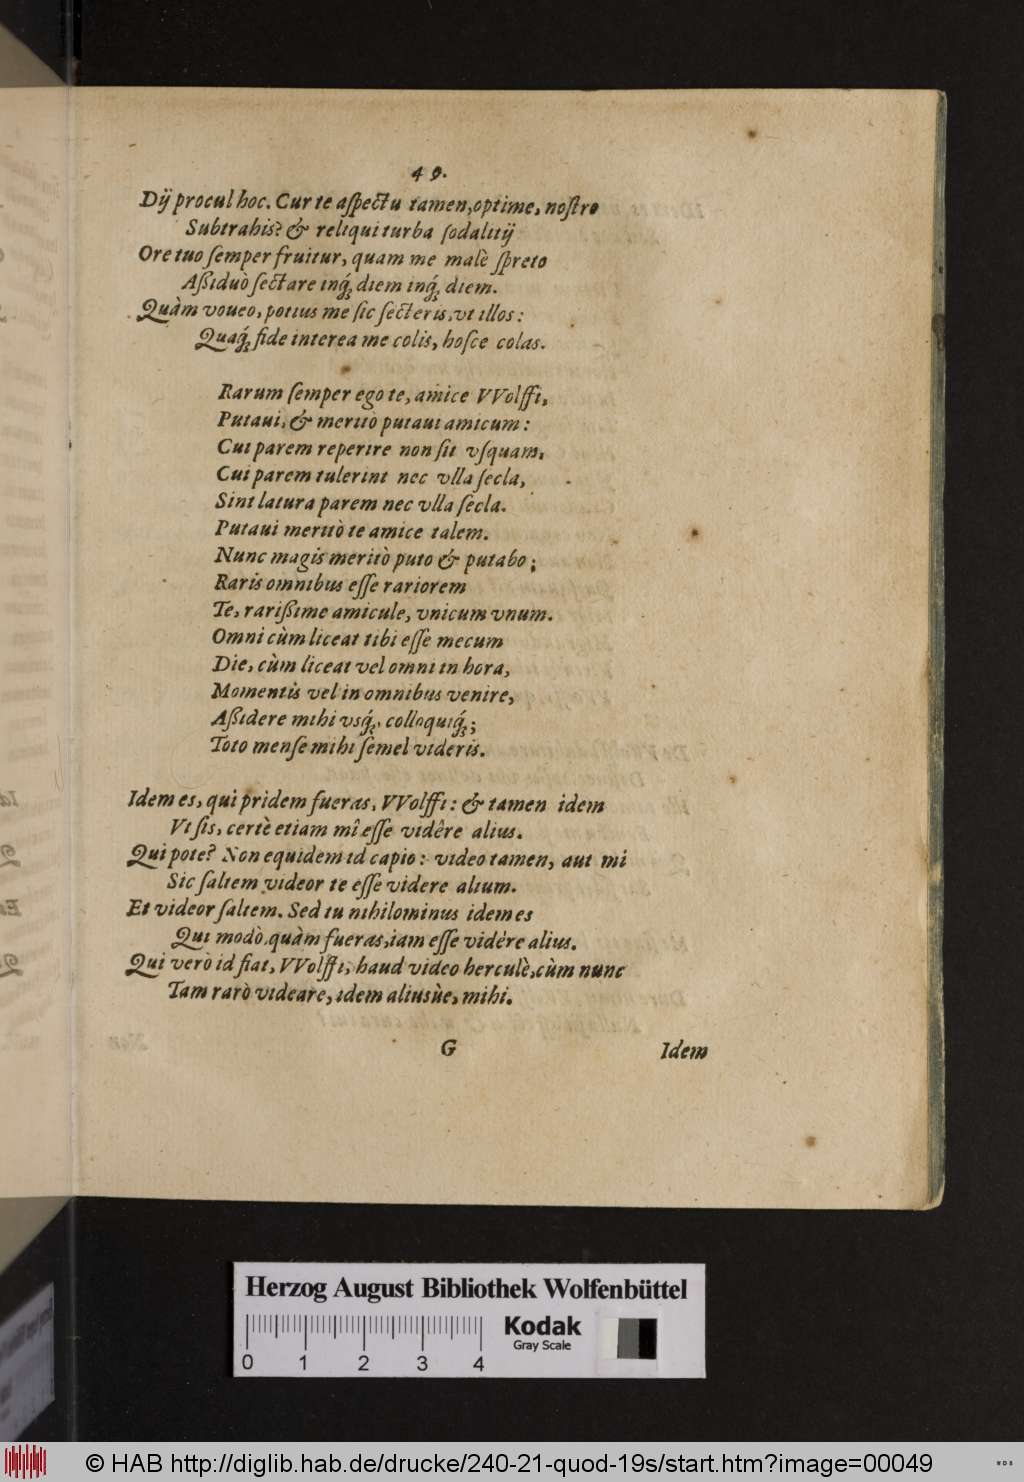 49.
Dij procul hoc. Cur te aſpectu tamen, optime, noſtro
Subtrahis? & reliqui turba ſodalitij
Ore tuo ſemper fruitur, quam me malè ſpreto
Aßiduò ſectare inq́ꝫ diem inq́ꝫ diem.
Quàm voueo, potius me ſic ſecteris, vt illos:
Quaq́ꝫ fide interea me colis, hoſce colas.
Rarum ſemper ego te, amice VVolffi,
Putaui, & meritò putaui amicum:
Cui parem reperire non ſit vſquam,
Cui parem tulerint nec vlla ſecla,
Sint latura parem nec vlla ſecla.
Putaui meritò te amice talem.
Nunc magis meritò puto & putabo;
Raris omnibus eſſe rariorem
Te, rarißime amicule, vnicum vnum.
Omni cùm liceat tibi eſſe mecum
Die, cùm liceat vel omni in hora,
Momentis vel in omnibus venire,
Aßidere mihi vsq́ꝫ, colloquiq́ꝫ;
Toto menſe mihi ſemel videris.
Idem es, qui pridem fueras, VVolffi: & tamen idem
Vt ſis, certè etiam mî eſſe vidêre alius.
Qui pote? Non equidem id capio: video tamen, aut mi
Sic ſaltem videor te eſſe videre alium.
Et videor ſaltem. Sed tu nihilominus idem es
Qui modò quàm fueras, iam eſſe vidêre alius.
Qui verò id fiat, VVolffi, haud video herculè, cùm nunc
Tam rarò videare, idem aliusùe, mihi.
G Idem
Herzog August Bibliothek Wolfenbüttel
0 1 2 3 4
Kodak
Gray Scale
© HAB http://diglib.hab.de/drucke/240-21-quod-19s/start.htm?image=00049